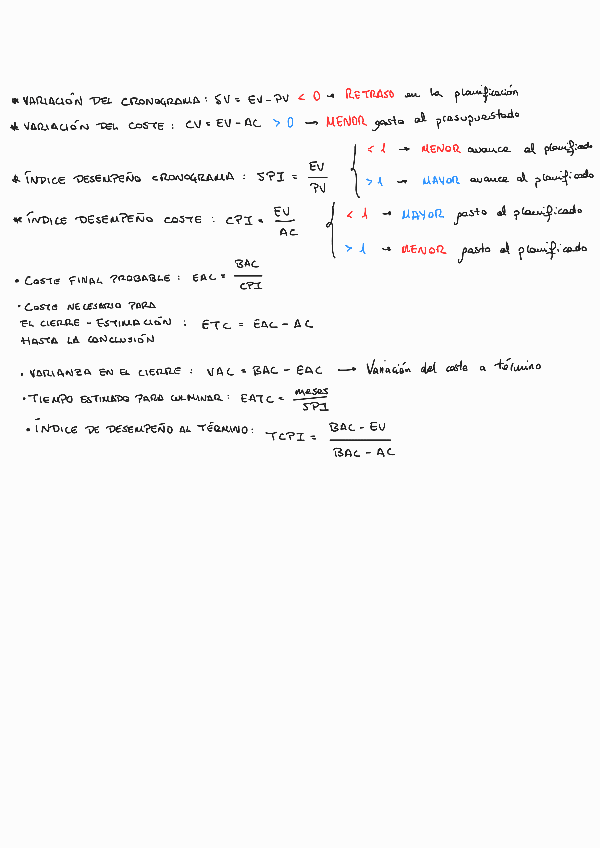 * VARIACIÓN DEL CRONOGRAMA: SV = EV - PV < 0 → RETRASO en la planificación
* VARIACIÓN DEL COSTE: CV = EV - AC > 0 → MENOR gasto al presupuestado
* ÍNDICE DESEMPEÑO CRONOGRAMA: SPI = EV / PV { < 1 → MENOR avance al planificado
> 1 → MAYOR avance al planificado
* ÍNDICE DESEMPEÑO COSTE: CPI = EV / AC { < 1 → MAYOR gasto al planificado
> 1 → MENOR gasto al planificado
• COSTE FINAL PROBABLE: EAC = BAC / CPI
• COSTE NECESARIO PARA
EL CIERRE - ESTIMACIÓN: ETC = EAC - AC
HASTA LA CONCLUSIÓN
• VARIANZA EN EL CIERRE: VAC = BAC - EAC → Variación del coste a término
• TIEMPO ESTIMADO PARA CULMINAR: EATC = meses / SPI
• ÍNDICE DE DESEMPEÑO AL TÉRMINO: TCPI = BAC - EV / BAC - AC